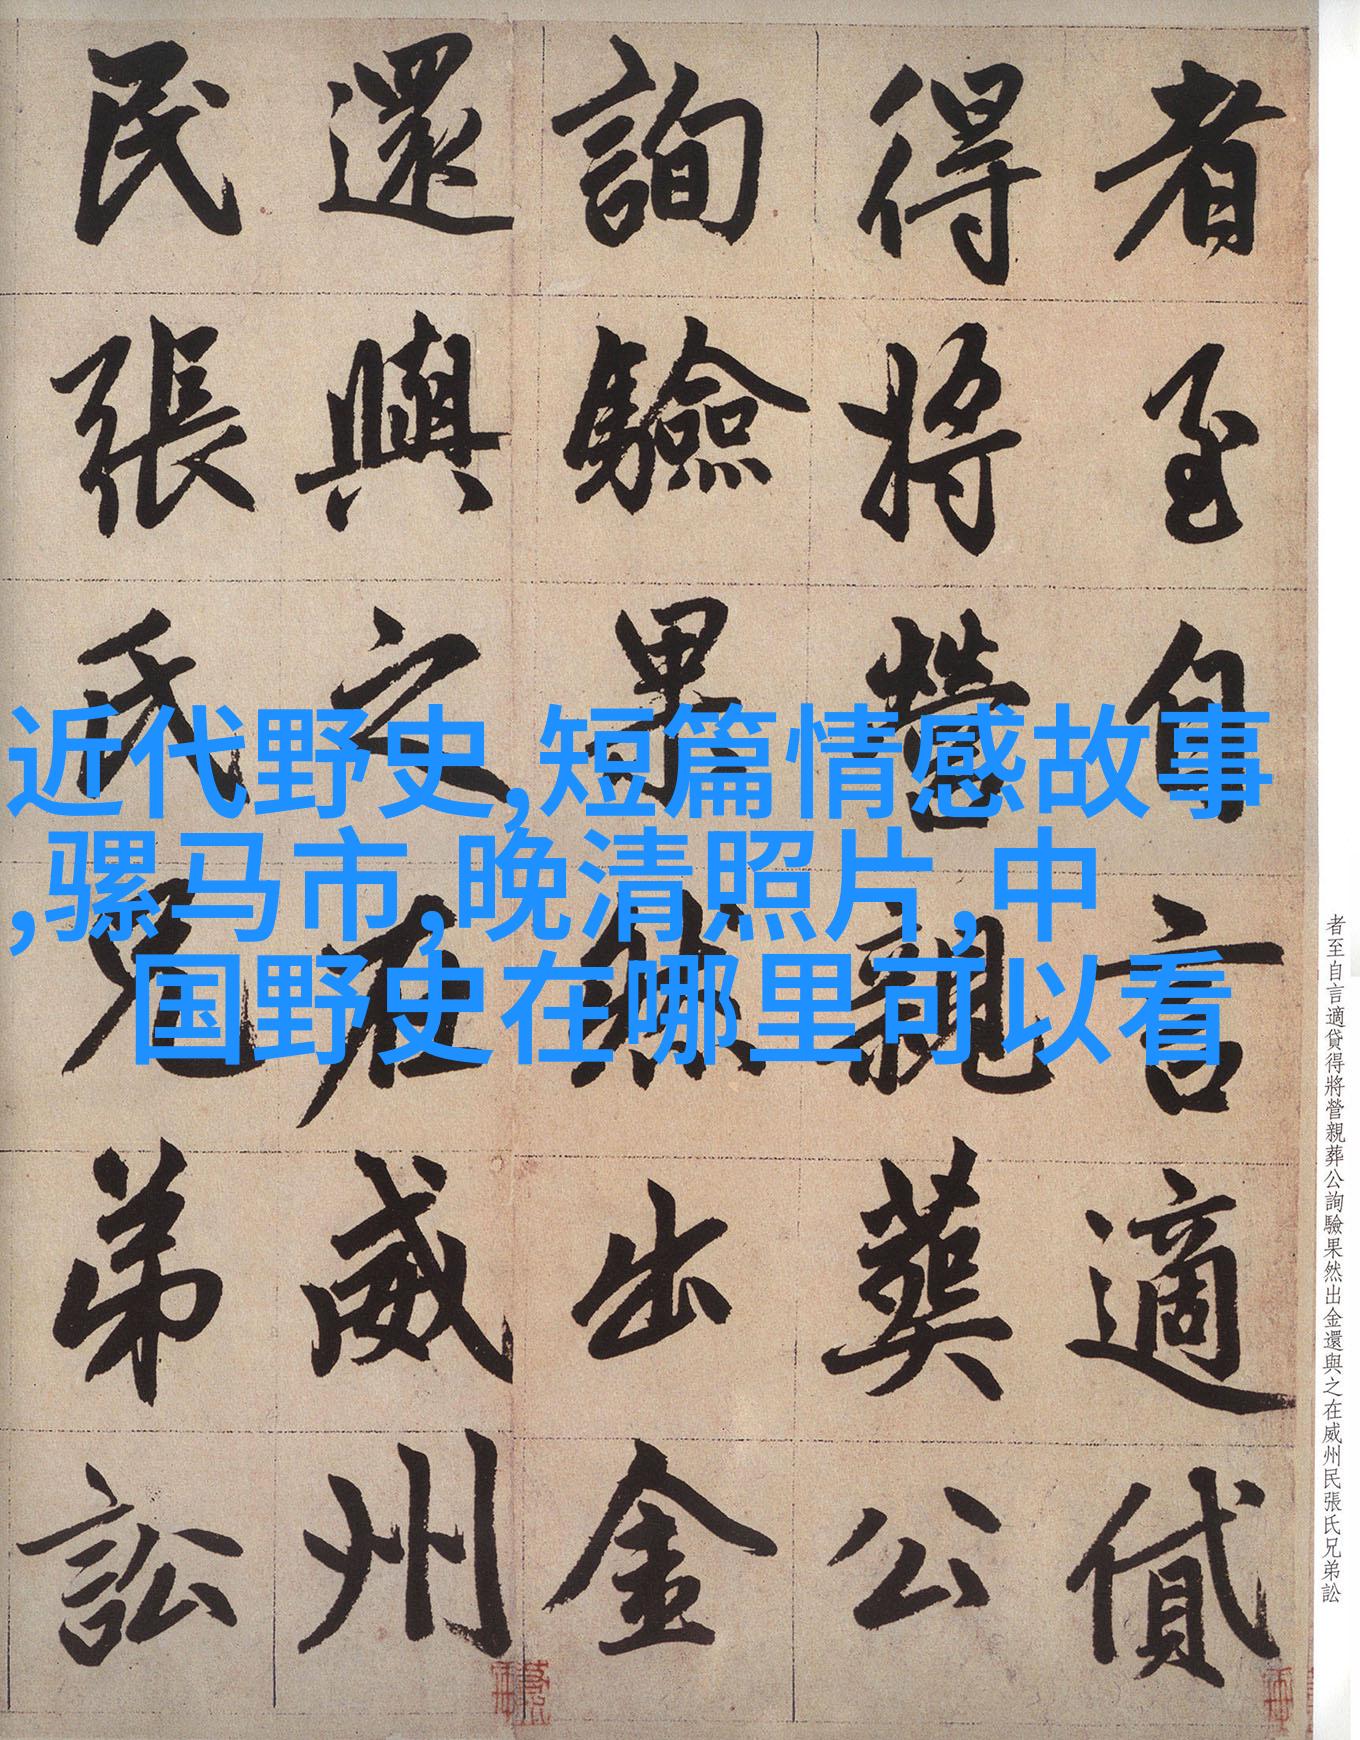 者至自言適貸
得將營親葬公
詢驗果然出金
還與之在威州
民張氏兄弟訟
近代野史,短篇情感故事
,骡马市,晚清照片,中
国野史在哪里可以看
者至自言適貸得將營親葬公詢驗果然出金還與之在威州民張氏兄弟訟